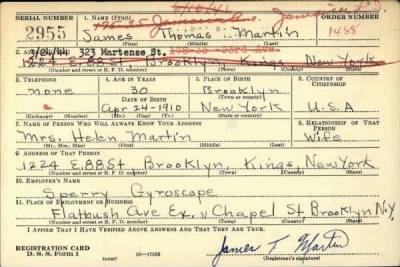 SERIAL NUMBER 1. NAME (Print) ORDER NUMBER
2955 James Thomas Martin 1488
(First) (Middle) (Last)
3/21/44 323 Martense St.
1224 E. 88 St, Brooklyn, Kings, New York
(Number and street or R. F. D. number) (Town) (County) (State)
3. TELEPHONE 4. AGE IN YEARS 5. PLACE OF BIRTH 6. COUNTRY OF CITIZENSHIP
none 30 Brooklyn
DATE OF BIRTH (Town or county)
Apr-24-1910 New York U.S.A
(Exchange) (Number) (Mo.) (Day) (Yr.) (State or country)
7. NAME OF PERSON WHO WILL ALWAYS KNOW YOUR ADDRESS 8. RELATIONSHIP OF THAT PERSON
Mrs. Helen Martin Wife
(Mr., Mrs., Miss) (First) (Middle) (Last)
9. ADDRESS OF THAT PERSON
1224 E. 88 St, Brooklyn, Kings, New York
(Number and street or R. F. D. number) (Town) (County) (State)
10. EMPLOYER'S NAME
Sperry Gyroscope
11. PLACE OF EMPLOYMENT OR BUSINESS
Flatbush Ave Ex. Chapel St Brooklyn N.Y
(Number and street or R. F. D. number) (Town) (County) (State)
I AFFIRM THAT I HAVE VERIFIED ABOVE ANSWERS AND THAT THEY ARE TRUE.
REGISTRATION CARD
D. S. S. Form 1 16-17105 James T Martin
(Registrant's signature)